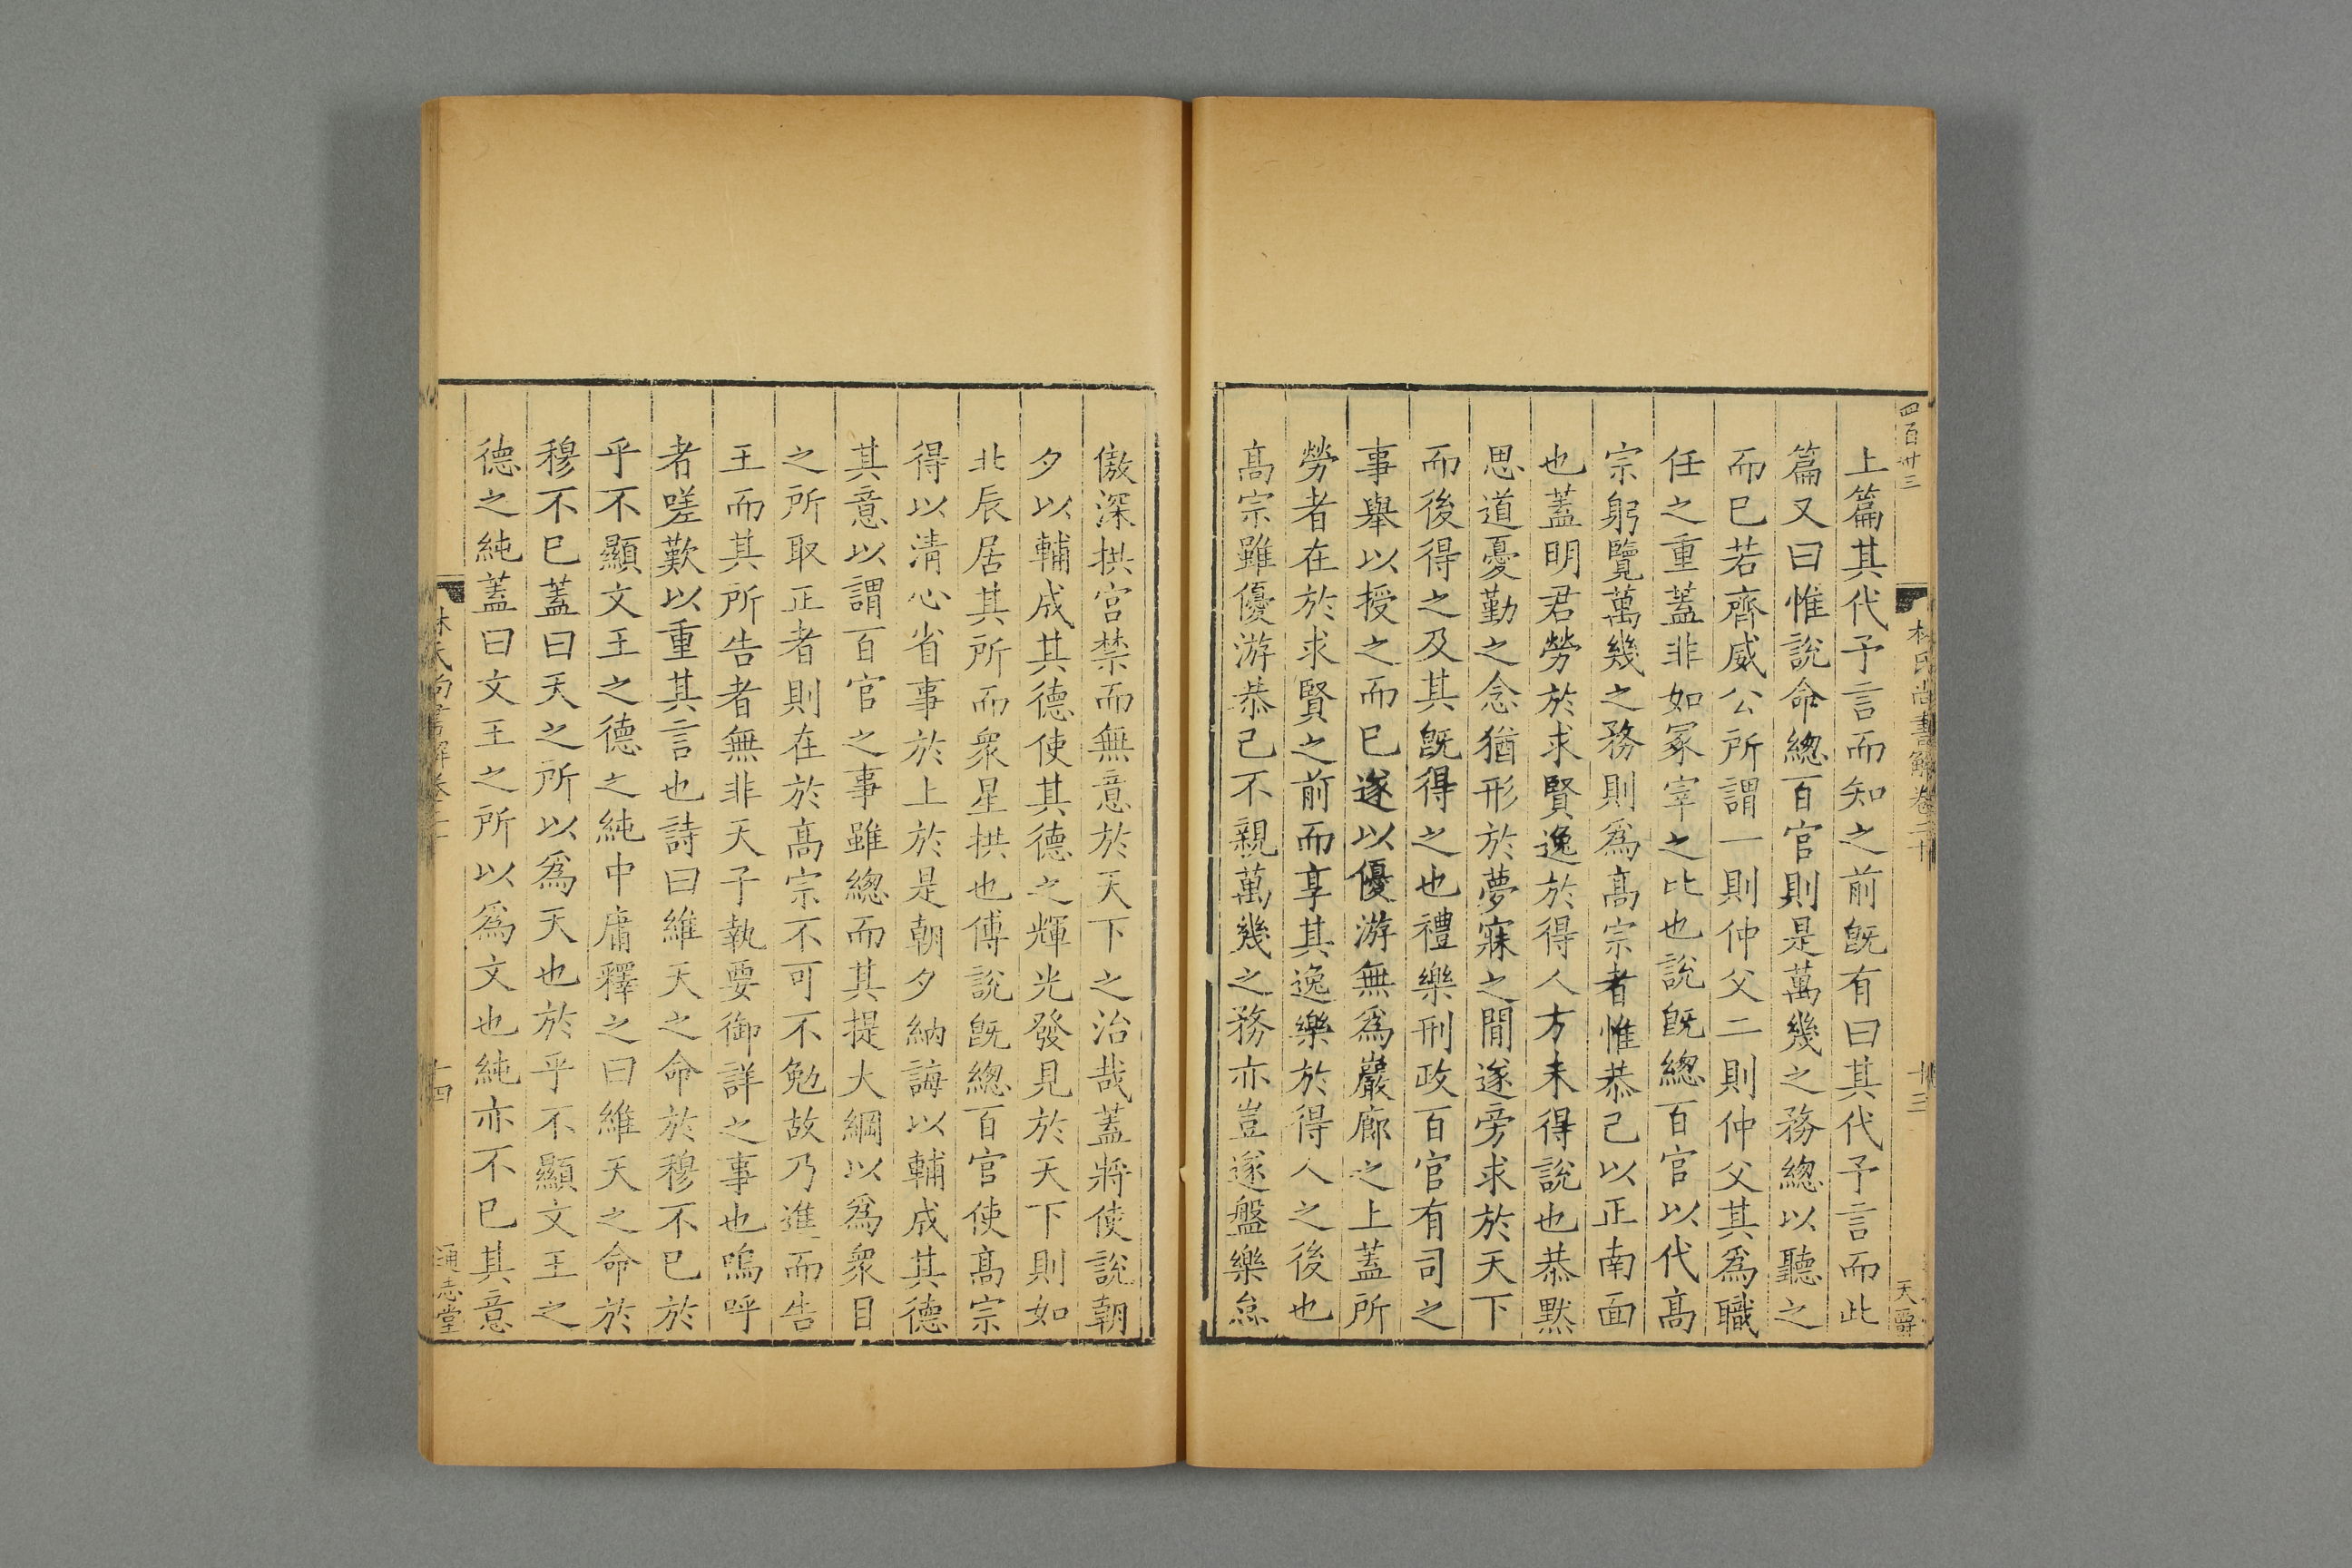 四百卅三
林氏尚書解卷二十
十三
天爵
上篇其代予言而知之前旣有曰其代予言而此
篇又曰惟說命緫百官則是萬幾之務緫以聽之
而已若齊威公所謂一則仲父二則仲父其爲職
任之重蓋非如冢宰之比也說旣緫百官以代髙
宗躬覽萬幾之務則爲髙宗者惟恭己以正南面
也蓋明君勞於求賢逸於得人方未得說也恭黙
思道憂勤之念猶形於夢寐之間遂旁求於天下
而後得之及其旣得之也禮樂刑政百官有司之
事舉以授之而已遂以優游無爲巖廊之上蓋所
勞者在於求賢之前而享其逸樂於得人之後也
髙宗雖優游恭己不親萬幾之務亦豈遂盤樂怠
傲深拱宮禁而無意於天下之治哉蓋將使說朝
夕以輔成其德使其德之輝光發見於天下則如
北辰居其所而衆星拱也傅說旣緫百官使髙宗
得以清心省事於上於是朝夕納誨以輔成其德
其意以謂百官之事雖緫而其提大綱以爲衆目
之所取正者則在於髙宗不可不勉故乃進而告
王而其所告者無非天子執要御詳之事也嗚呼
者嗟歎以重其言也詩曰維天之命於穆不已於
乎不顯文王之德之純中庸釋之曰維天之命於
穆不已蓋曰天之所以爲天也於乎不顯文王之
德之純蓋曰文王之所以爲文也純亦不已其意
林氏尚書解卷二十
十四
通志堂